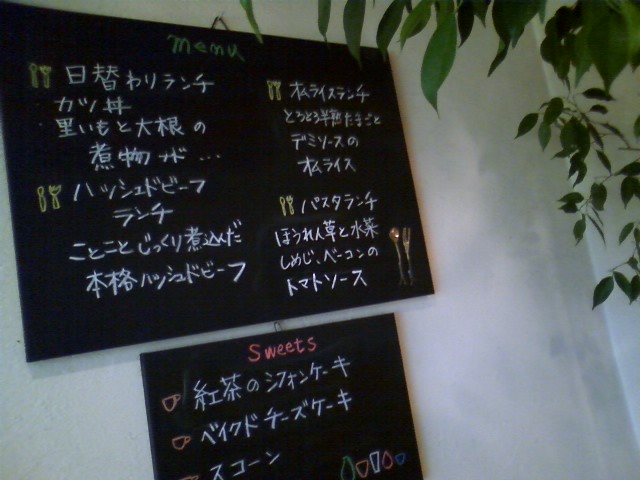 menu
日替わりランチ
カツ丼
里いもと大根の
煮物 など…
ハッシュドビーフ
ランチ
ことことじっくり煮込んだ
本格ハッシュドビーフ
オムライスランチ
とろとろ半熟たまごと
デミソースの
オムライス
パスタランチ
ほうれん草と水菜
しめじ、ベーコンの
トマトソース
Sweets
紅茶のシフォンケーキ
ベイクドチーズケーキ
スコーン